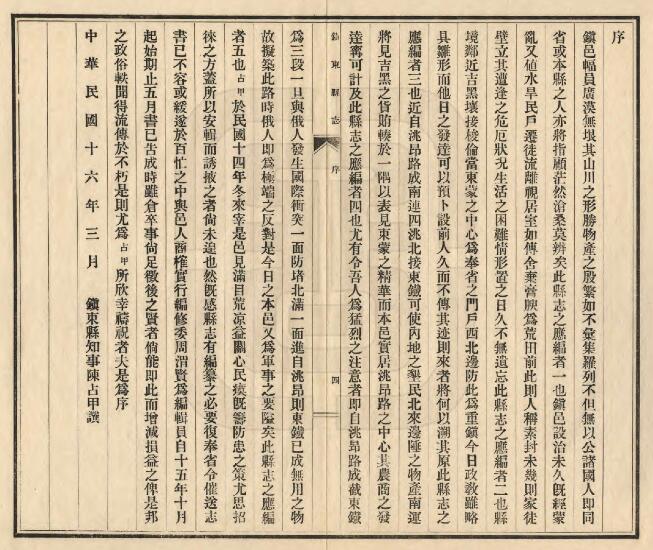 序
鎭邑幅員廣漠無垠其山川之形勝物產之殷繁如不彙集羅列不但無以公諸國人即同
省或本縣之人亦將指顧茫然滄桑莫辨矣此縣志之應編者一也鎭邑設治未久旣經蒙
亂又値水旱民戶遷徙流離視居室如傳舍棄膏腴爲荒田前此則人稱素封未幾則家徒
壁立其遭逢之危厄狀況生活之困難情形置之日久不無遺忘此縣志之應編者二也縣
境鄰近吉黑壤接梭倫當東蒙之中心爲奉省之門戶西北邊防此爲重鎭今日政敎雖略
具雛形而他日之發達可以預卜設前人久而不傳其迹則來者將何以溯其原此縣志之
應編者三也近自洮昂路成南連四洮北接東鐵可使內地之墾民北來邊陲之物產南運
將見吉黑之貨賄輳於一隅以表見東蒙之精華而本邑實居洮昂路之中心其農商之發
達寗可計及此縣志之應編者四也尤有令吾人爲猛烈之注意者即自洮昂路成截東鐵
鎭東縣志
序
四
爲三段一旦與俄人發生國際衝突一面防堵北滿一面進自洮昂則東鐵已成無用之物
故擬築此路時俄人即爲極端之反對是今日之本邑又爲軍事之要隘矣此縣志之應編
者五也占甲於民國十四年冬來宰是邑見滿目荒凉益關心民瘼旣籌防患之策尤思招
徠之方蓋所以安輯而誘掖之者尙未遑也然旣感縣志有編纂之必要復奉省令催送志
書已不容或緩遂於百忙之中與邑人商榷實行編修委周渭賢爲編輯員自十五年十月
起始期止五月書已告成時雖倉卒事尙足徵後之賢者倘能即此而增減損益之俾是邦
之政俗軼聞得流傳於不朽是則尤爲占甲所欣幸禱祝者夫是爲序
中華民國十六年三月 鎭東縣知事陳占甲譔